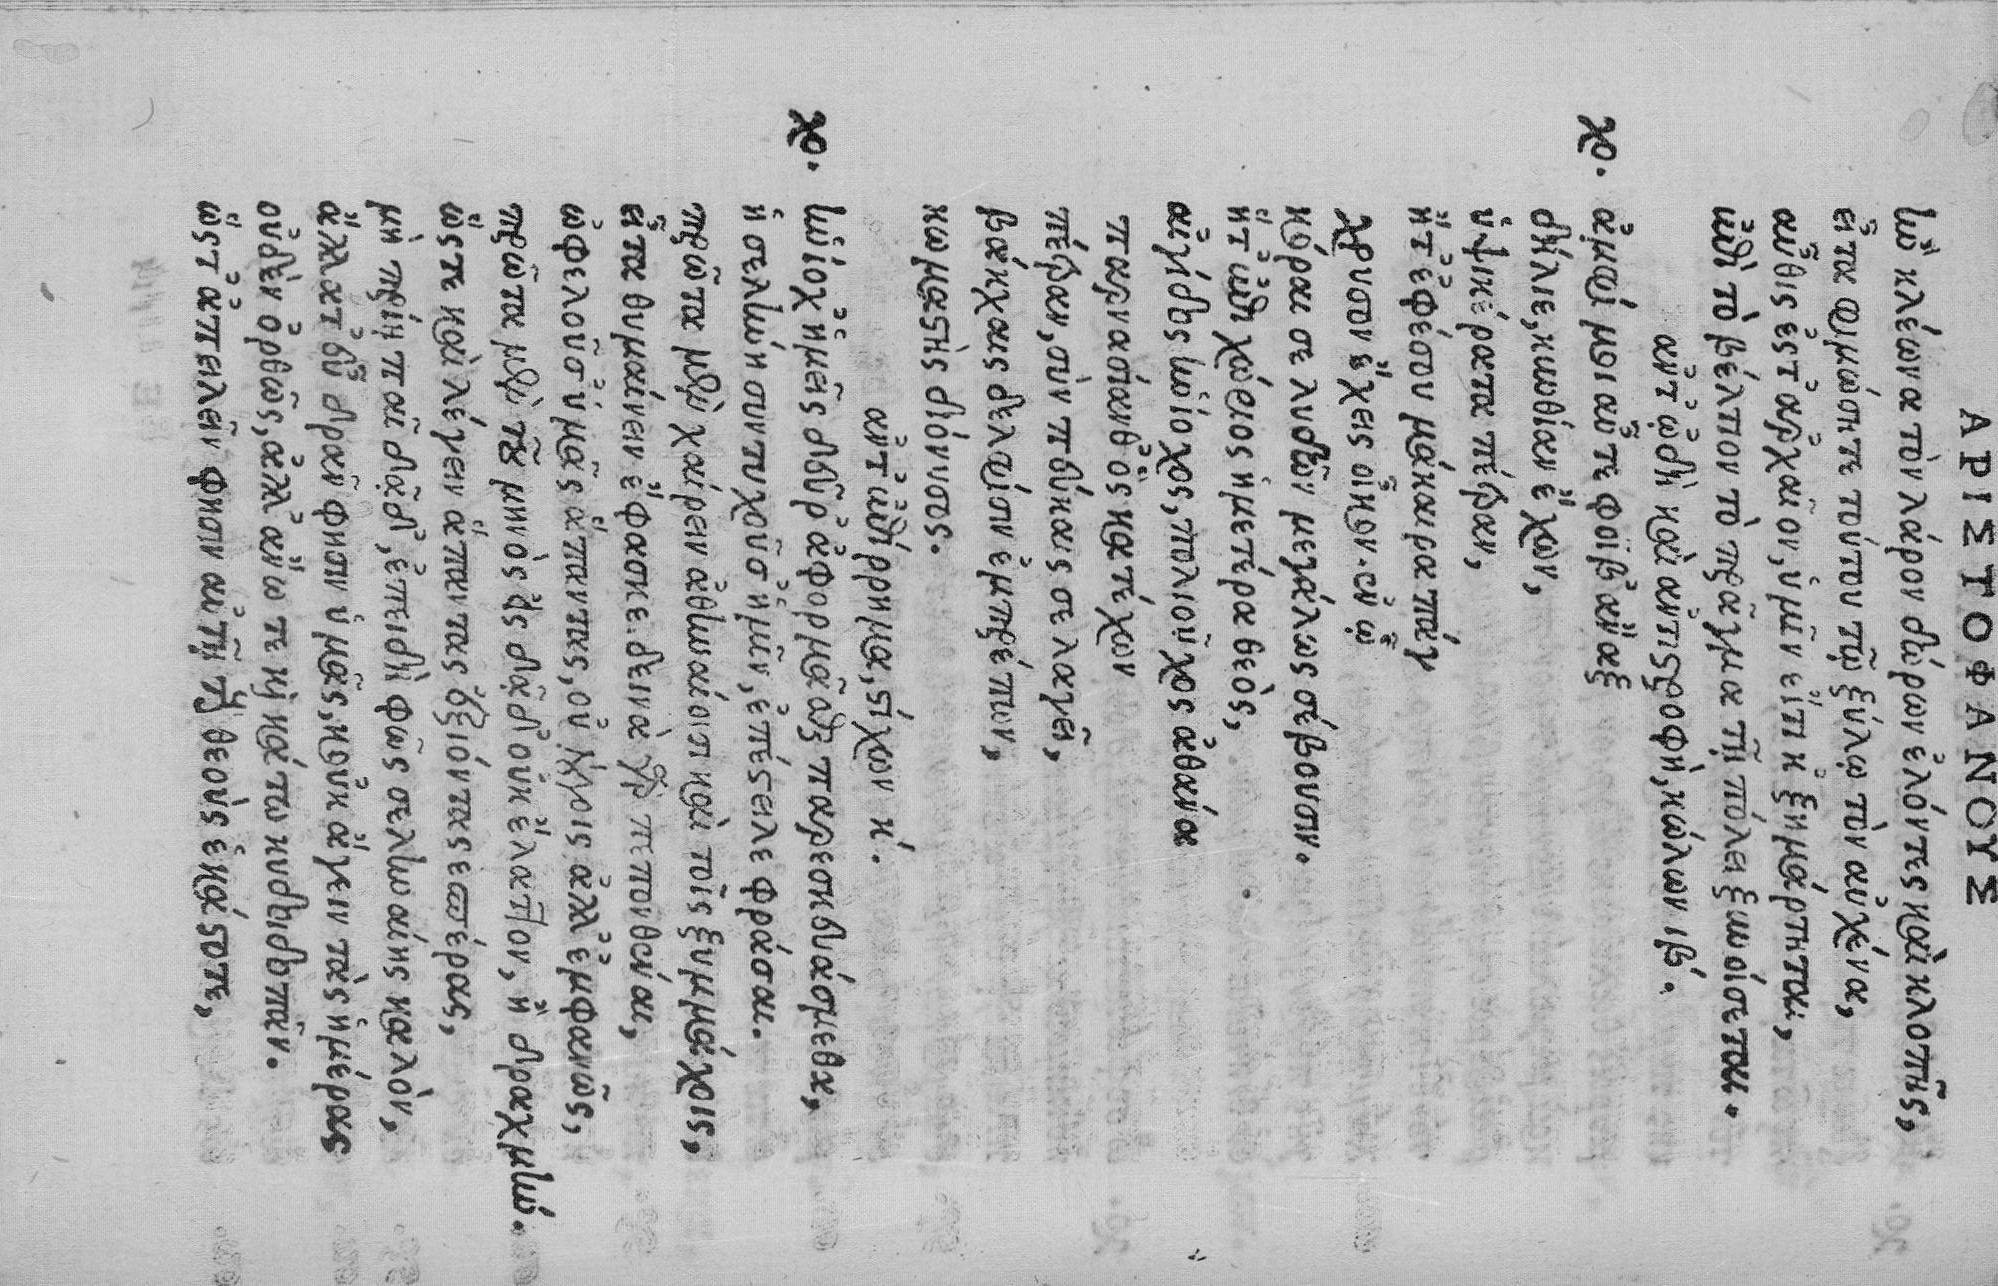 ΑΡΙΣΤΟΦΑΝΟΥΣ
ἢν κλέωνα τὸν λάρον δώρων ἑλόντες καὶ κλοπῆς,
εἶτα φιμώσητε τούτου τῷ ξύλῳ τὸν αὐχένα,
αὖθις ἐς τ' ἀρχαῖον, ὑμῖν εἴ τι κ' ἐξημάρτηται,
ἐπὶ τὸ βέλτιον τὸ πρᾶγμα τῇ πόλει ξυνοίσεται.
ἀντῳδὴ καὶ ἀντιστροφὴ, κώλων ιβ.
χο. ἀμφί μοι αὖτε φοῖβ' ἄναξ
δήλιε, κυνθίαν ἔχων,
ὑψικέρατα πέτραν,
ἥ τ' ἐφέσου μάκαιρα πάγ
χρυσον ἔχεις οἶκον. ἐν ᾧ
κόραι σε λυδῶν μεγάλως σέβουσιν.
ἥ τ' ἐπιχώριος ἡμετέρα θεὸς,
αἰγίδος ἡνίοχος, πολιοῦχος ἀθάνα
παρνασίαν θ' ὃς κατέχων
πέτραν, σὺν πεύκαις σελαγεῖ,
βάκχαις δελφίσιν ἐμπρέπων,
κωμαστὴς διόνυσος.
ἀντεπίρρημα, στίχων κ.
χο. ἡνίοχ' ἡμεῖς δεῦρ' ἀφορμᾶσθαι παρεσκευάσμεθα,
ἡ σελήνη συντυχοῦσ' ἡμῖν, ἐπέστειλε φράσαι.
πρῶτα μὲν χαίρειν ἀθηναίοισι καὶ τοῖς ξυμμάχοις,
εἶτα θυμαίνειν ἔφασκε. δεινὰ γὰρ πεπονθέναι,
ὠφελοῦσ' ὑμᾶς ἅπαντας, οὐ λόγοις ἀλλ' ἐμφανῶς,
πρῶτα μὲν τοῦ μηνὸς εἰς δᾷδ' οὐκ ἔλαττον, ἢ δραχμήν.
ὥστε καὶ λέγειν ἅπαντας ἐξιόντας ἑσπέρας,
μὴ πρίῃ παῖ δᾷδ', ἐπειδὴ φῶς σεληναίης καλὸν,
ἄλλα τ' εὖ δρᾶν φησιν ὑμᾶς, κοὐκ ἄγειν τὰς ἡμέρας
οὐδὲν ὀρθῶς, ἀλλ' ἄνω τε καὶ κάτω κυδοιδοπᾶν.
ὥς τ' ἀπειλεῖν φησιν αὐτῇ τοὺς θεοὺς ἑκάστοτε,